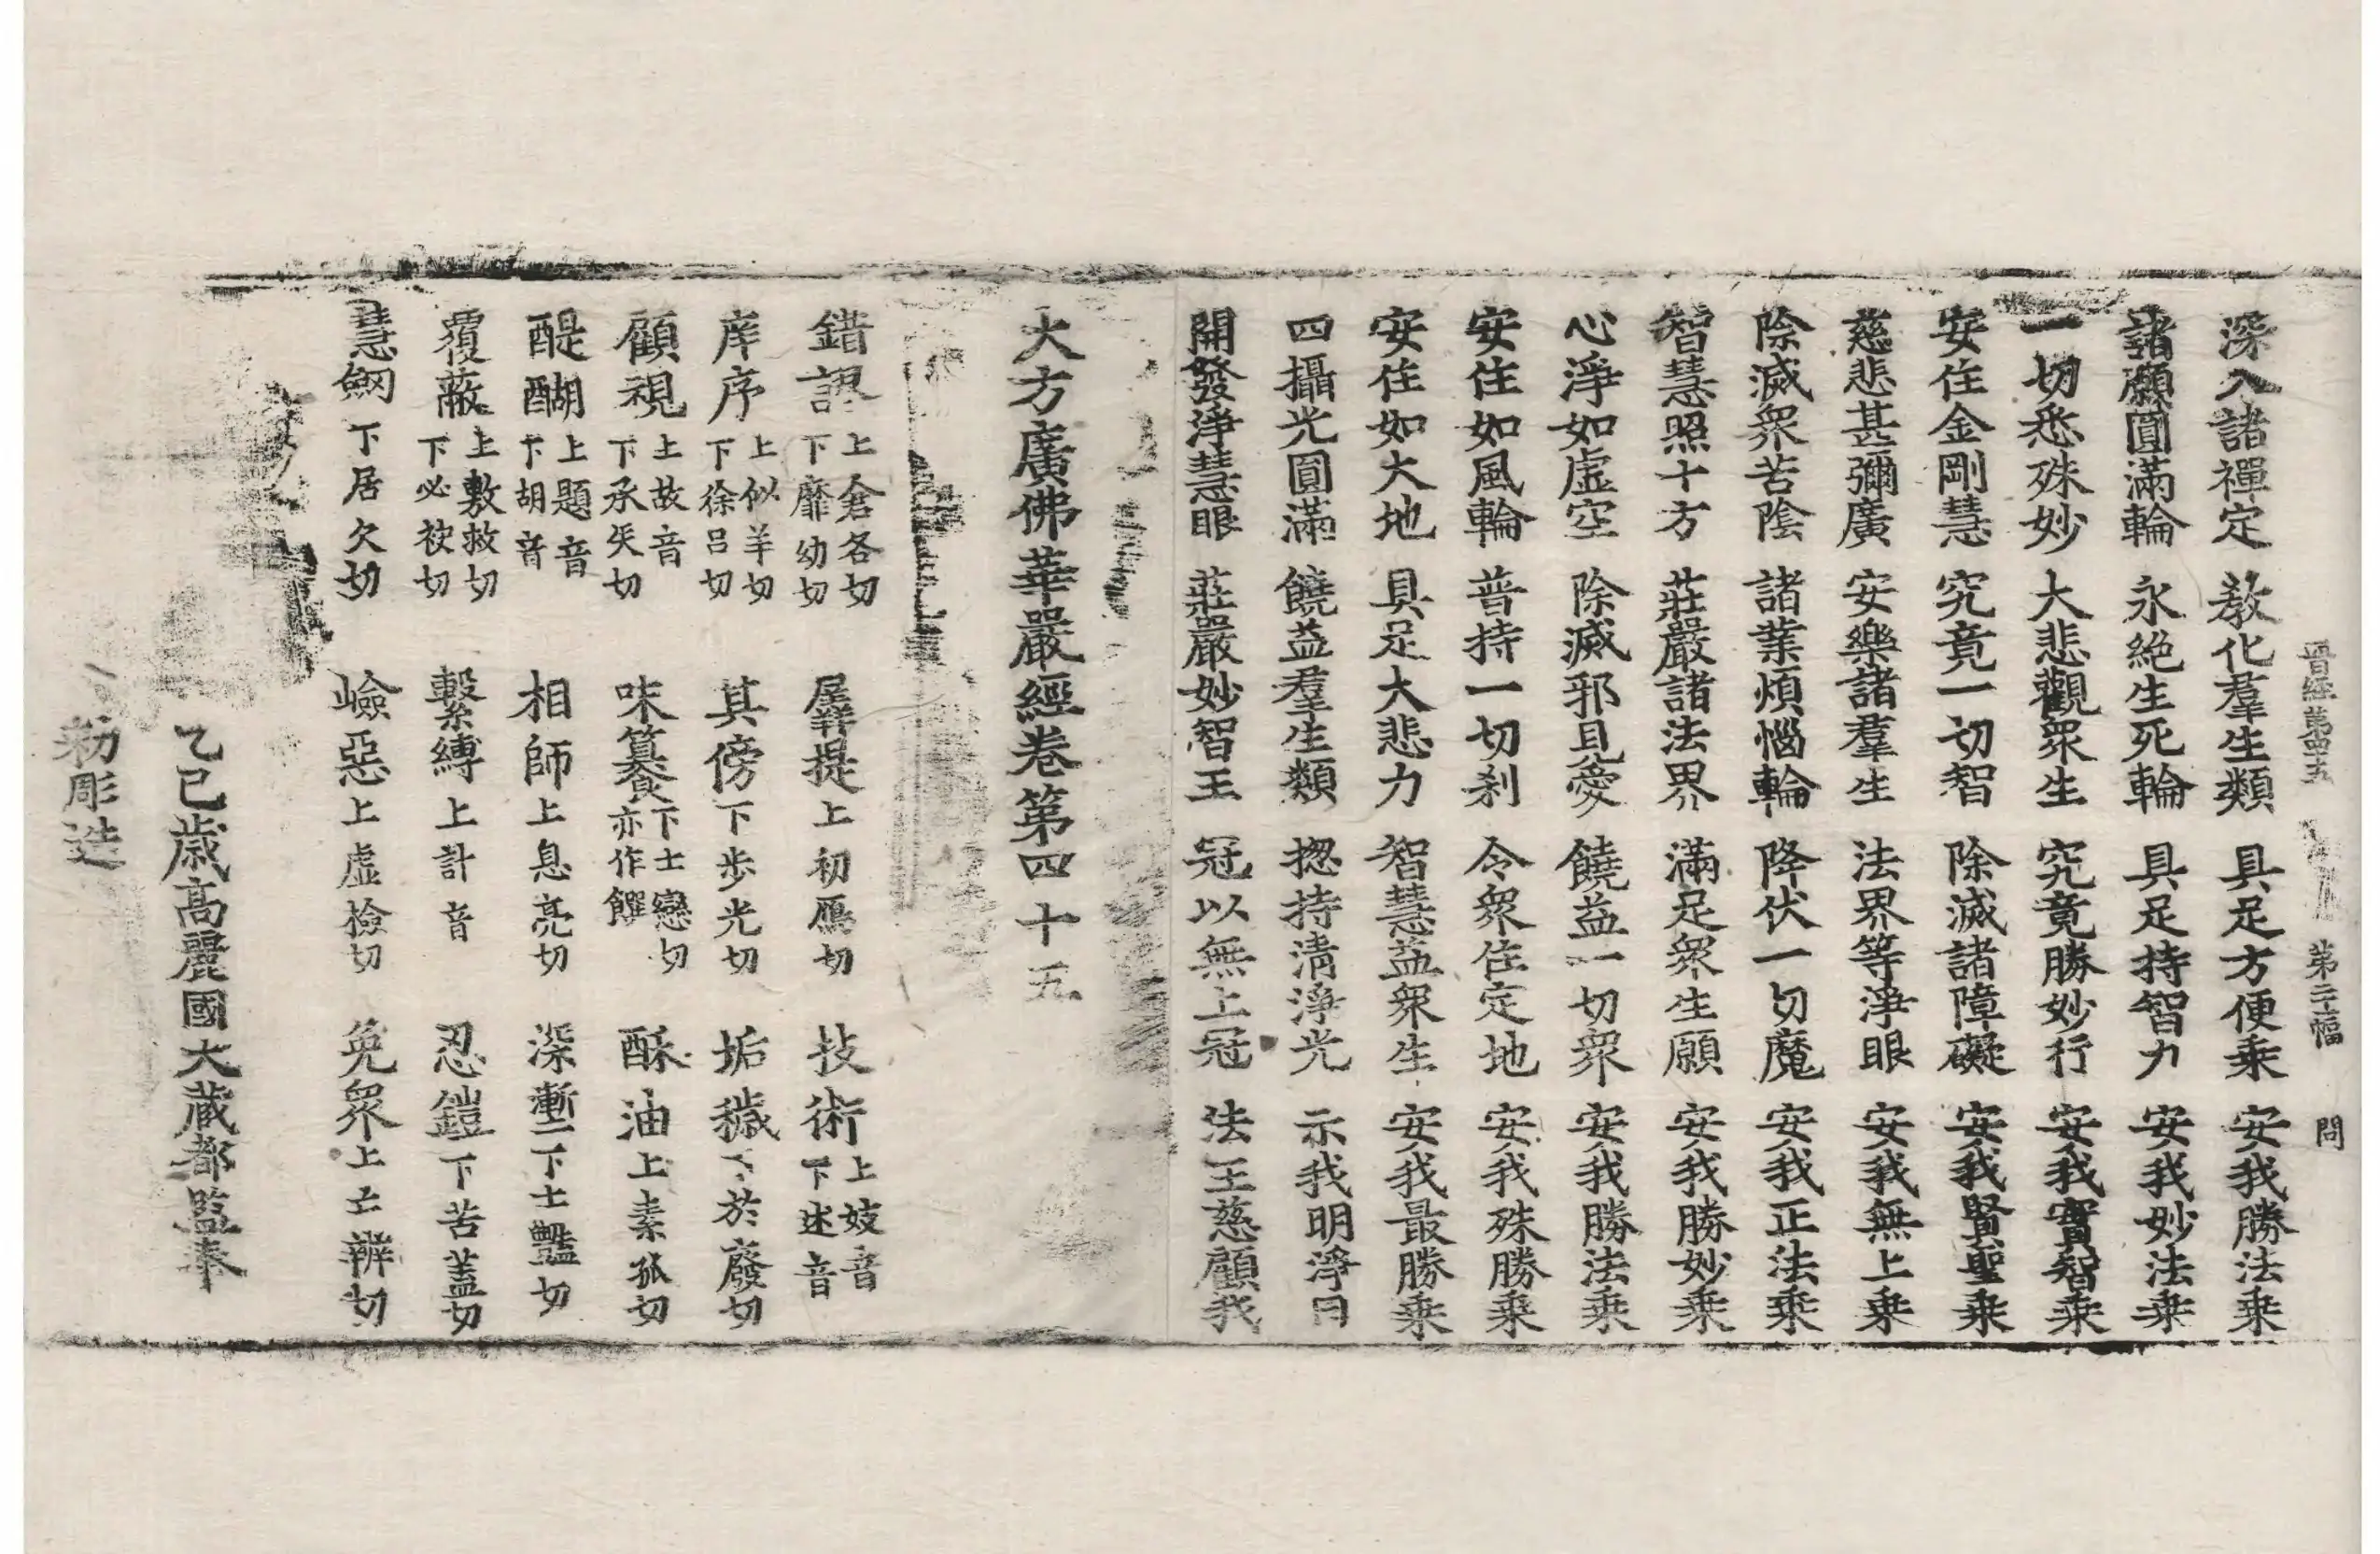 晉經第四十五　第二十幅　問
深入諸禪定　教化羣生類　具足方便乘　安我勝法乘
諸願圓滿輪　永絶生死輪　具足持智力　安我妙法乘
一切悉殊妙　大悲觀衆生　究竟勝妙行　安我實智乘
安住金剛慧　究竟一切智　除滅諸障礙　安我賢聖乘
慈悲甚彌廣　安樂諸羣生　法界等淨眼　安我無上乘
除滅衆苦陰　諸業煩惱輪　降伏一切魔　安我正法乘
智慧照十方　莊嚴諸法界　滿足衆生願　安我勝妙乘
心淨如虛空　除滅邪見愛　饒益一切衆　安我勝法乘
安住如風輪　普持一切刹　令衆住定地　安我殊勝乘
安住如大地　具足大悲力　智慧益衆生　安我最勝乘
四攝光圓滿　饒益羣生類　揔持淸淨光　示我明淨日
開發淨慧眼　莊嚴妙智王　冠以無上冠　法王慈顧我
大方廣佛華嚴經卷第四十五
錯謬上倉各切下靡幼切　羼提上初鴈切　技術上妓音下述音
庠序上似羊切下徐呂切　其傍下步光切　垢穢下於廢切
顧視上故音下承矢切　味饌下士戀切亦作饌　酥油上素孤切
醍醐上題音下胡音　相師上息亮切　深塹下士豔切
覆蔽上敷救切下必袂切　繫縛上計音　忍鎧下苦蓋切
慧劒下居欠切　嶮惡上虛檢切　免衆上亡辨切
乙巳歳高麗國大藏都監奉
勑彫造